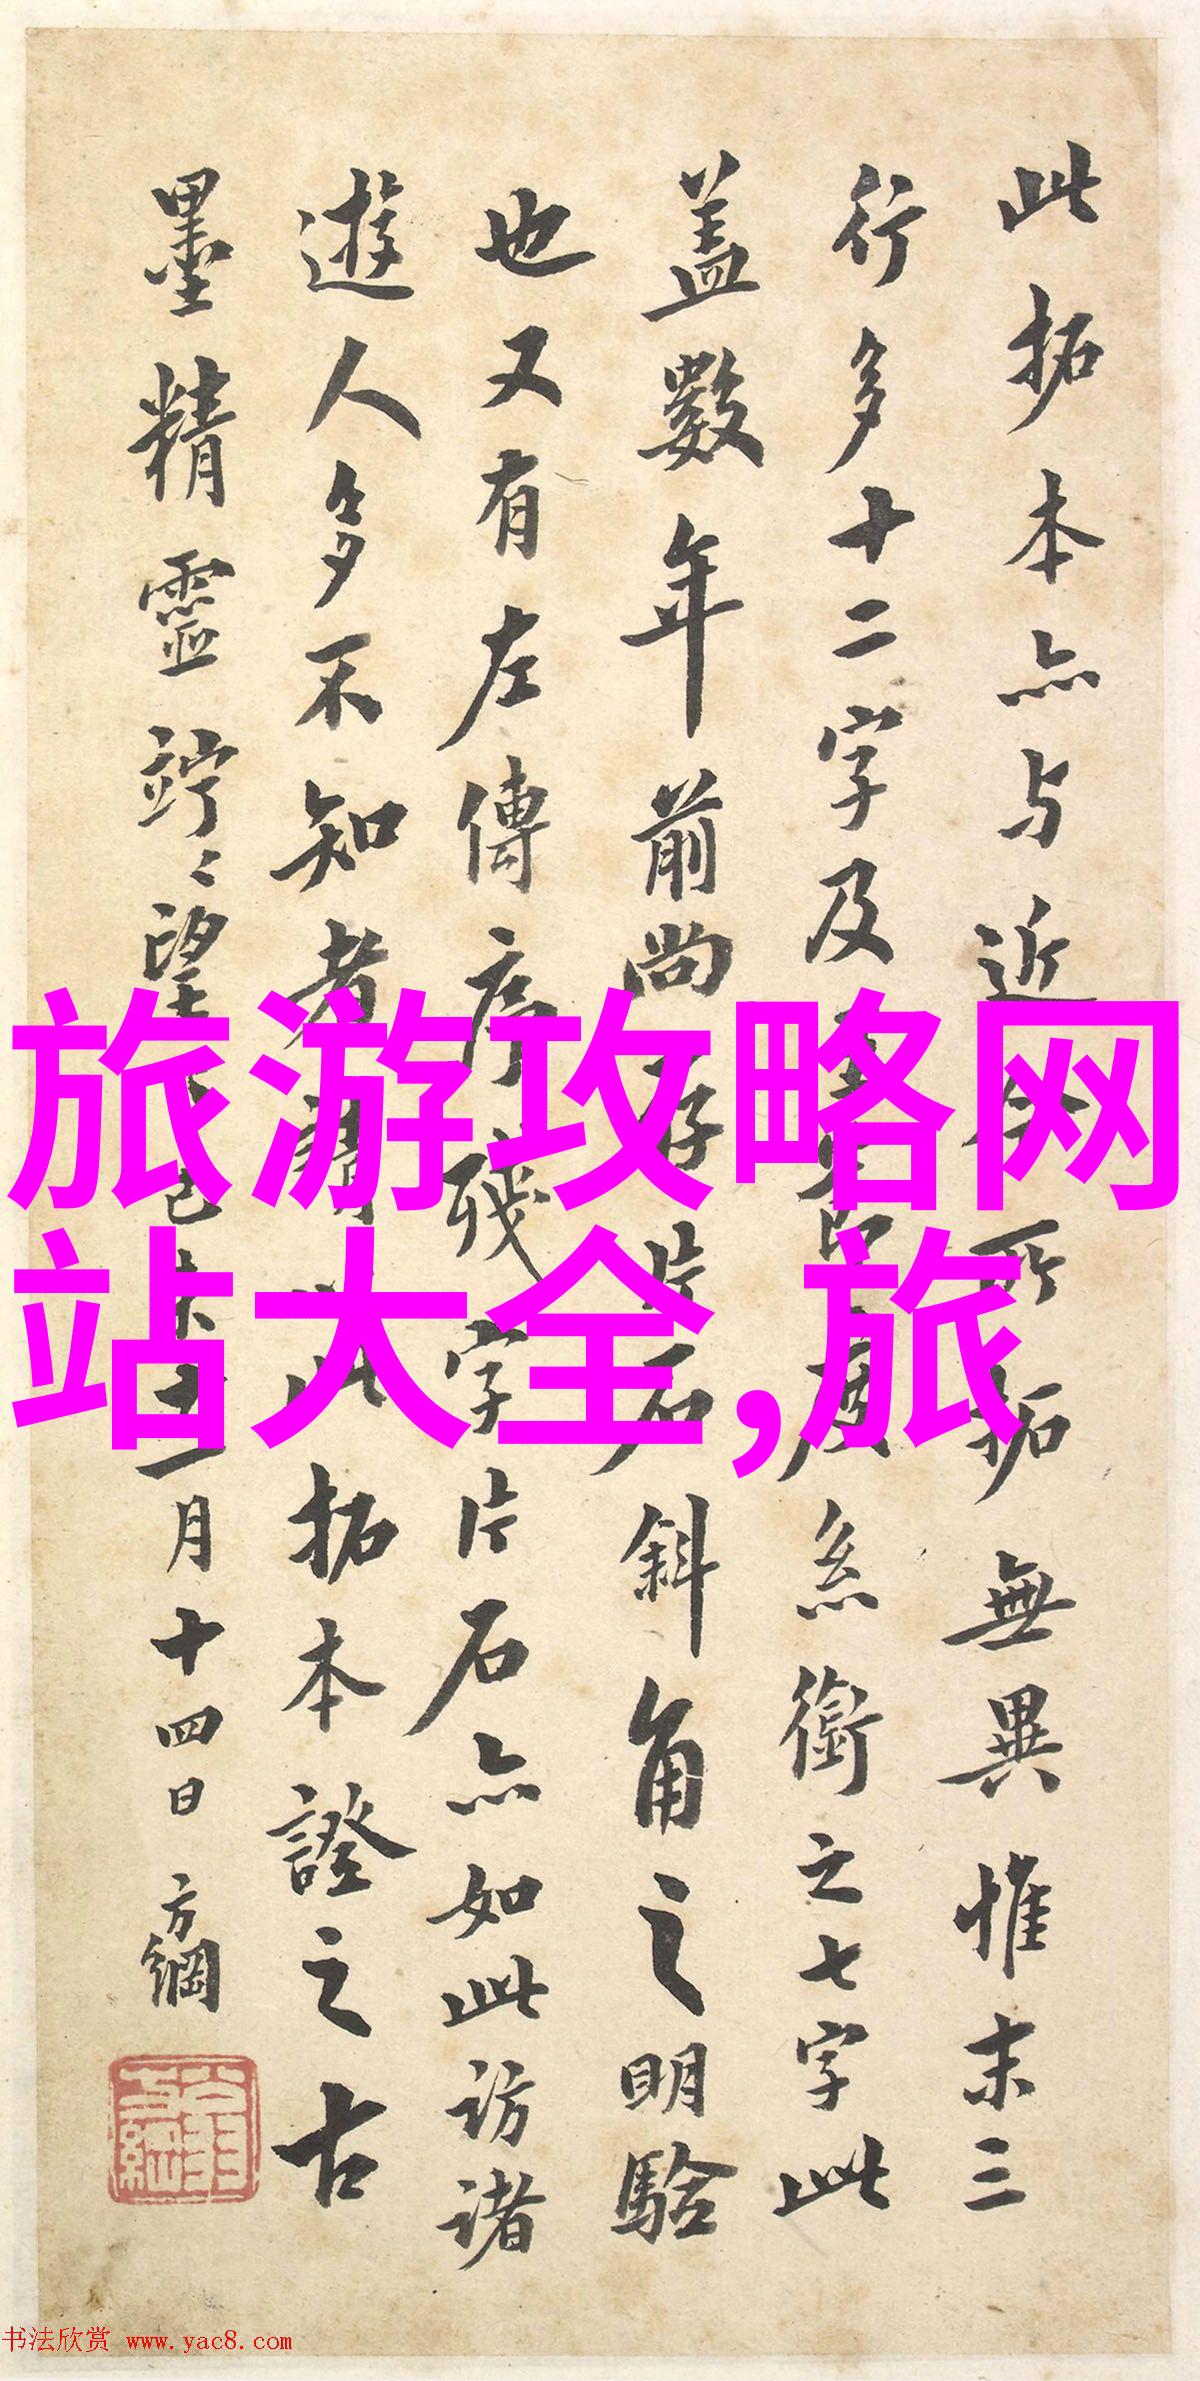 此拓本亦与近今所拓無異惟末三
行多十二字及
糸銜之七字此
蓋數年前尚存片石斜角之明驗
也又有左傳序殘字片石亦如此訪諸
遊人多不知者
拓本證之古
墨精靈竚〻望
月十四日方綱
旅游攻略网
站大全,旅
书法欣赏 www.yac8.com